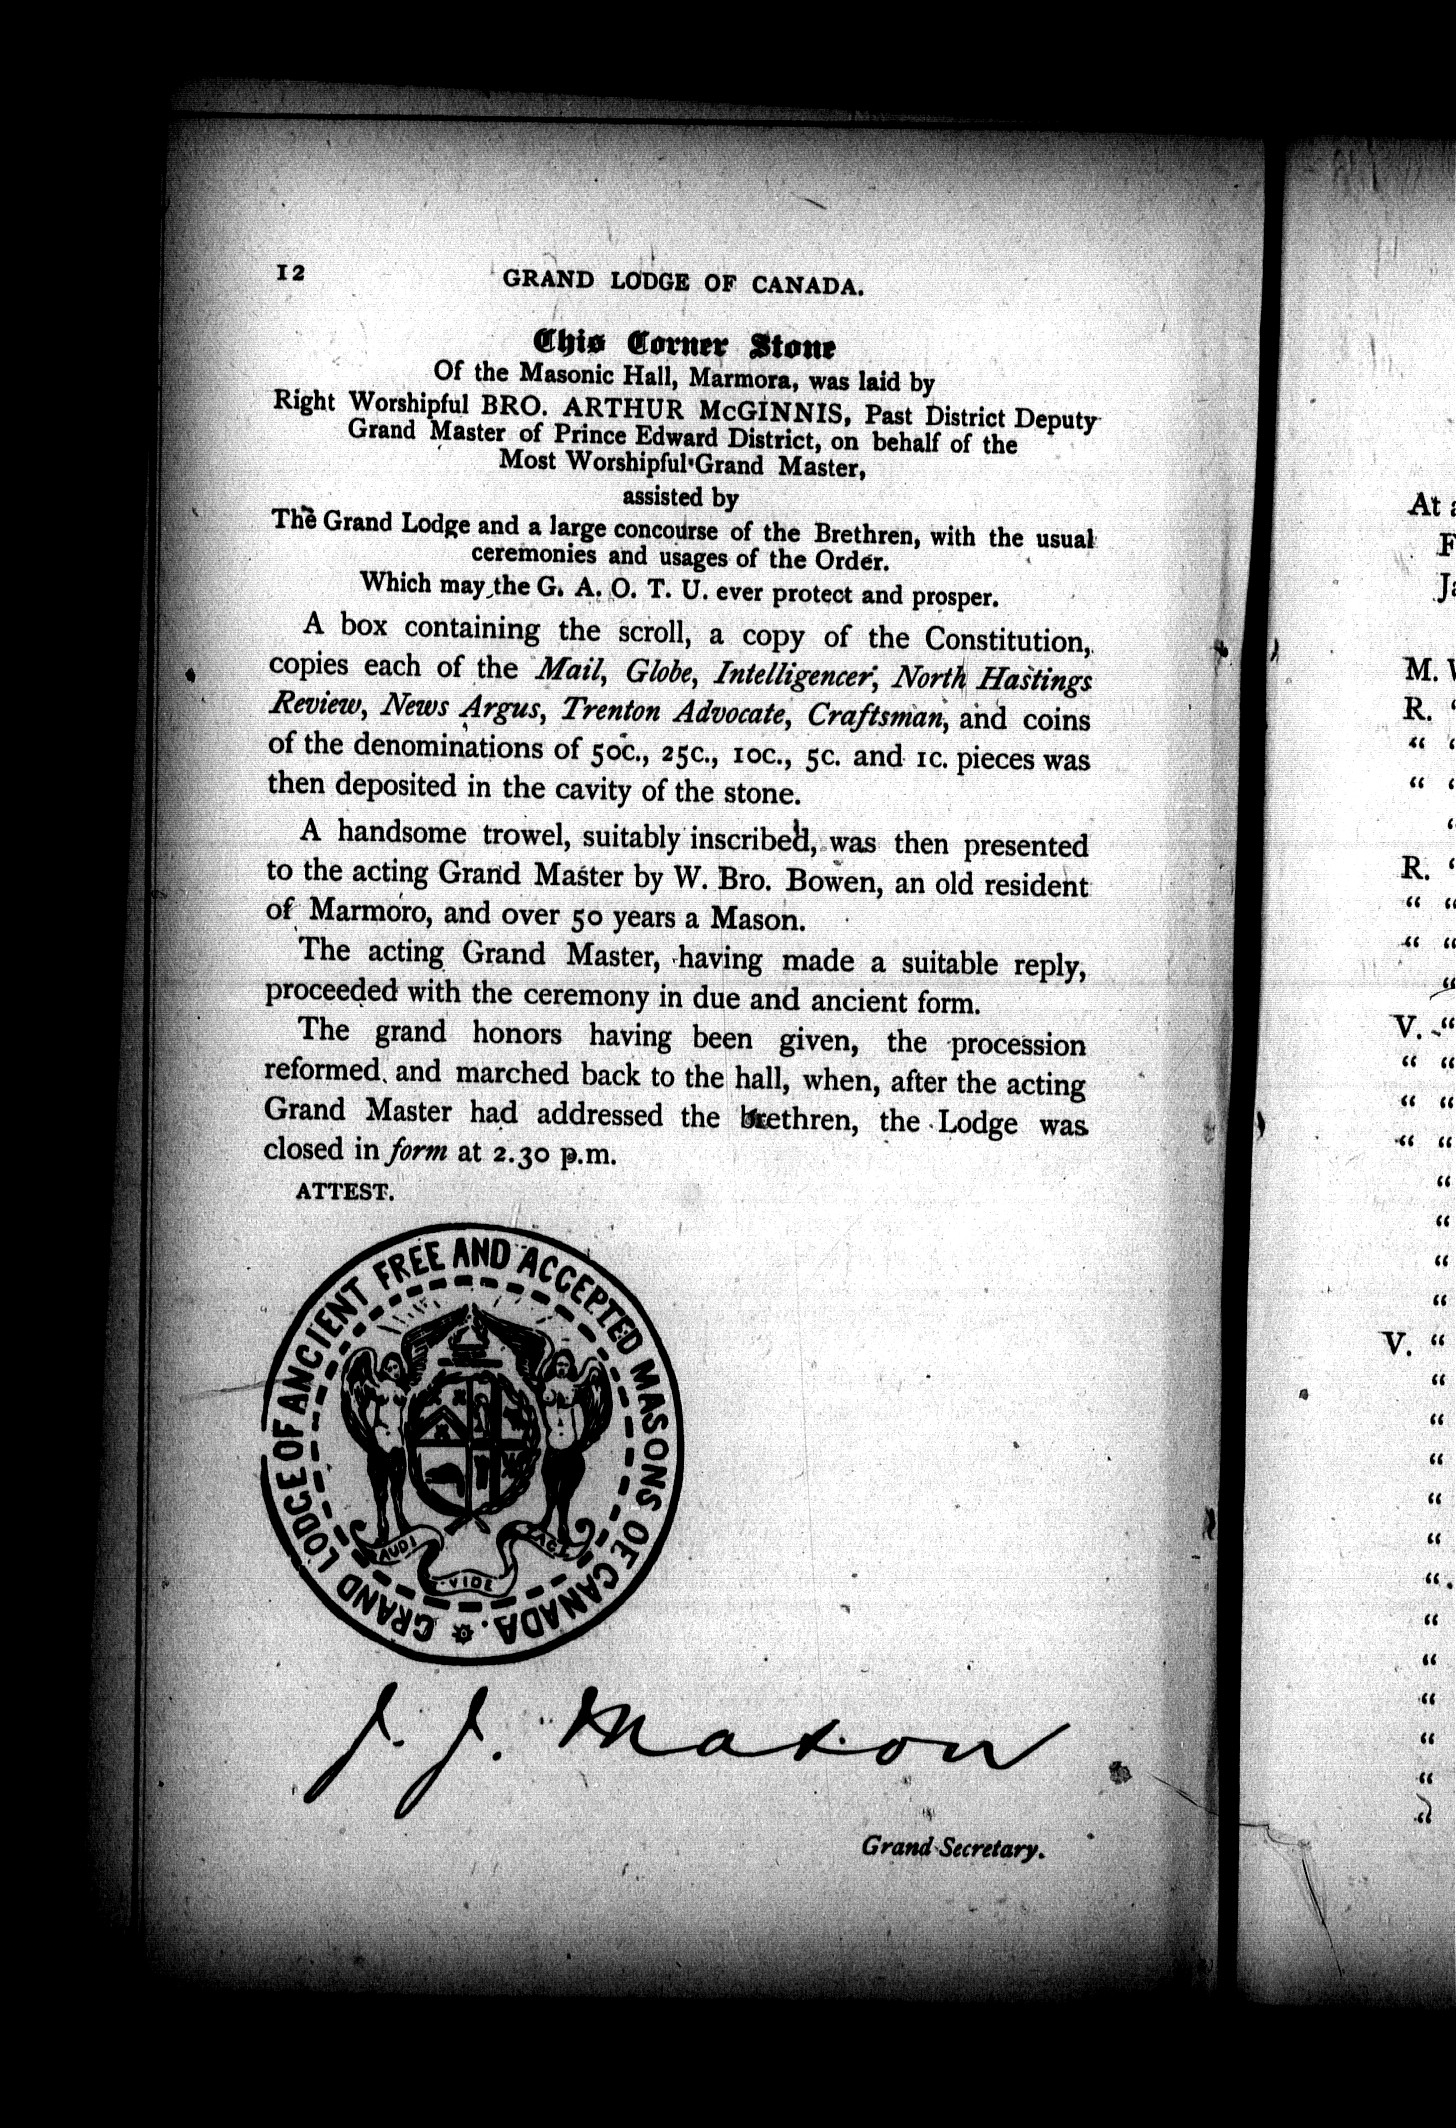 12
GRAND LODGE OF CANADA.
This Corner Stone
Of the Masonic Hall, Marmora, was laid by
Right Worshipful BRO. ARTHUR McGINNIS, Past District Deputy
Grand Master of Prince Edward District, on behalf of the
Most Worshipful Grand Master,
assisted by
The Grand Lodge and a large concourse of the Brethren, with the usual
ceremonies and usages of the Order.
Which may the G. A. O. T. U. ever protect and prosper.
A box containing the scroll, a copy of the Constitution,
copies each of the Mail, Globe, Intelligencer, North Hastings
Review, News Argus, Trenton Advocate, Craftsman, and coins
of the denominations of 50c., 25c., 10c., 5c. and 1c. pieces was
then deposited in the cavity of the stone.
A handsome trowel, suitably inscribed, was then presented
to the acting Grand Master by W. Bro. Bowen, an old resident
of Marmoro, and over 50 years a Mason.
The acting Grand Master, having made a suitable reply,
proceeded with the ceremony in due and ancient form.
The grand honors having been given, the procession
reformed and marched back to the hall, when, after the acting
Grand Master had addressed the brethren, the Lodge was
closed in form at 2.30 p.m.
ATTEST.
GRAND LODGE OF ANCIENT FREE AND ACCEPTED MASONS OF CANADA.
AUDI VIDE TACE
J. J. Mason
Grand Secretary.
At
M.
R. "
" "
" "
"
R. "
" "
" "
"
V. "
" "
" "
" "
"
"
"
"
V. "
"
"
"
"
"
"
"
"
"
"
"
"